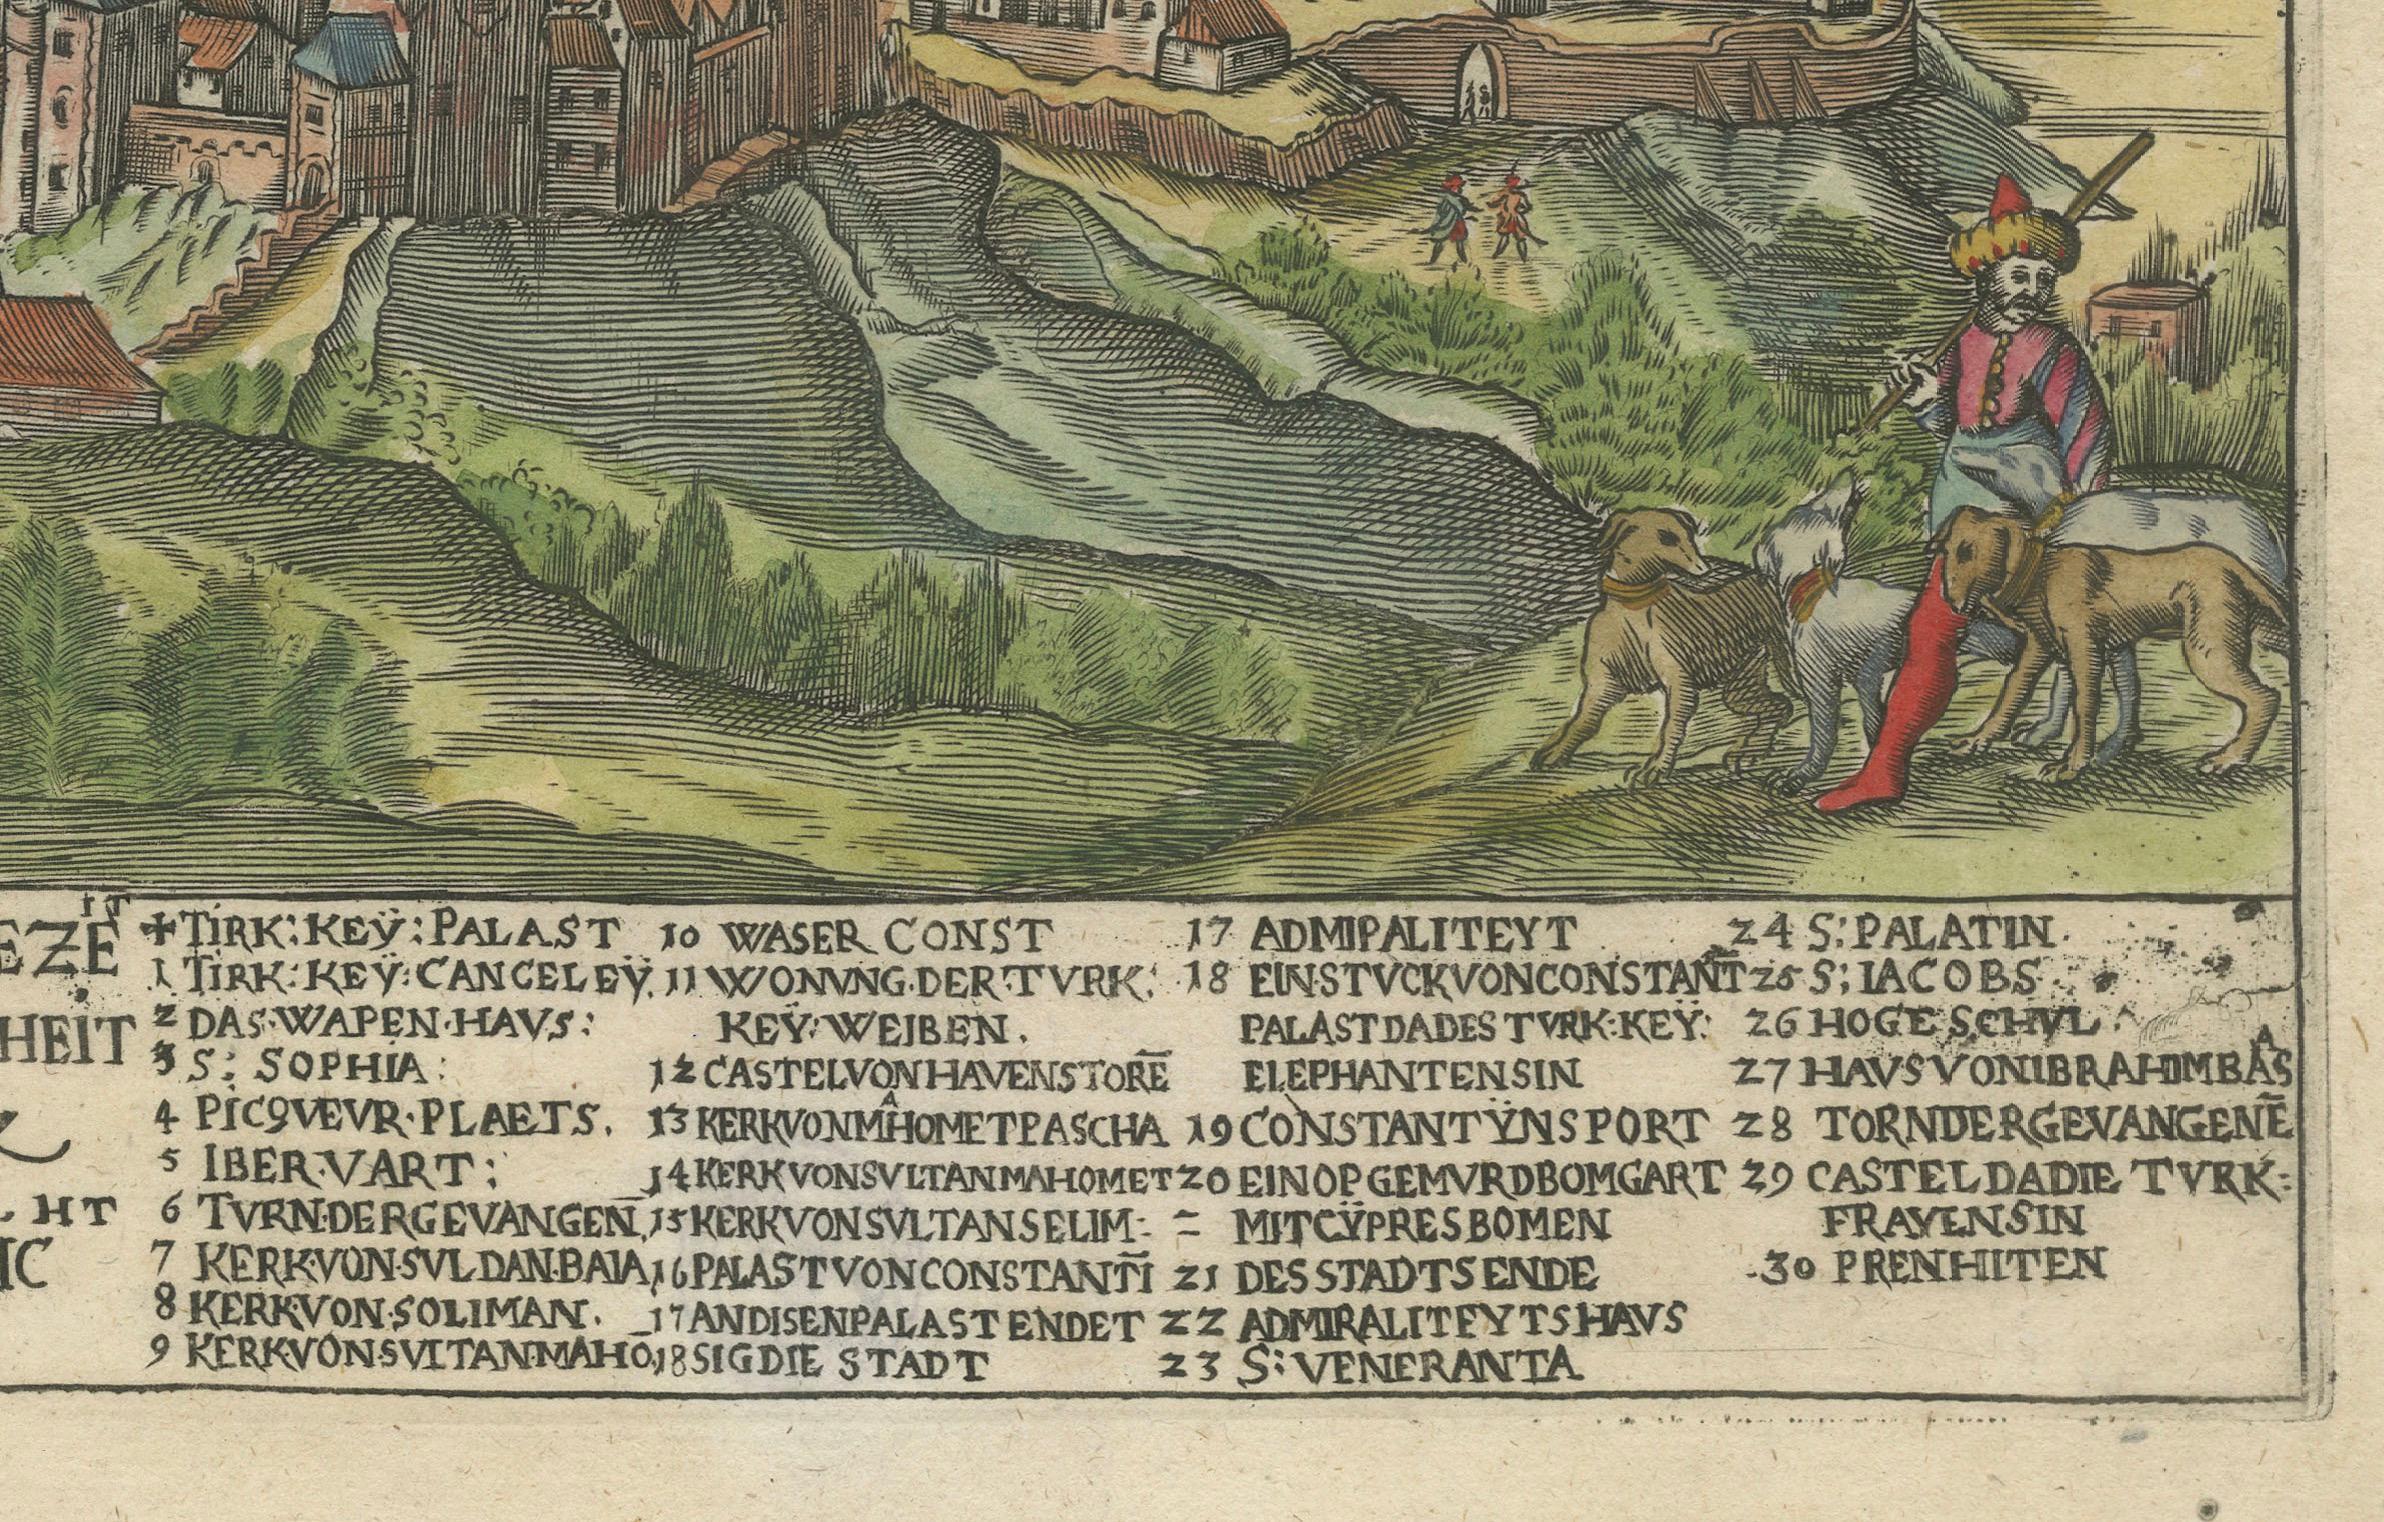 EZĒ IT
HEIT
HT
IC
✢ TIRK: KEŸ: PALAST
1 TIRK: KEŸ: CANCELEŸ.
2 DAS·WAPEN·HAVS:
3 S: SOPHIA:
4 PICQVEVR·PLAETS.
5 IBER·VART:
6 TVRN·DER GEVANGEN
7 KERK·VON·SVLDAN·BAIA
8 KERK·VON·SOLIMAN.
9 KERK·VON·SVLTAN·MAHO
10 WASER CONST
11 WONVNG·DER·TVRK:
KEŸ: WEIBEN.
12 CASTEL VON HAVENS TORĒ
13 KERK VON MAHOMET PASCHA
14 KERK VON SVLTAN MAHOMET
15 KERK VON SVLTAN SELIM:
16 PALAST VON CONSTANTĪ
17 AN DISEN PALAST ENDET
18 SIG DIE STADT
17 ADMIPALITEYT
18 EIN·STVCK VON CONSTAN̄T
PALAST DA DES TVRK: KEŸ:
ELEPHANTEN SIN
19 CONSTANTŸNS PORT
20 EIN OP GEMVRD BOMGART
= MIT CŸPRES BOMEN
21 DES STADTS ENDE
22 ADMIRALITEYTS HAVS
23 S: VENERANTA
24 S: PALATIN.
25 S: IACOBS
26 HOGE SCHVL
27 HAVS VON IBRAHIM BAS A
28 TORN DER GEVANGENĒ
29 CASTEL DA DIE TVRK:
FRAVEN SIN
30 PRENHITEN